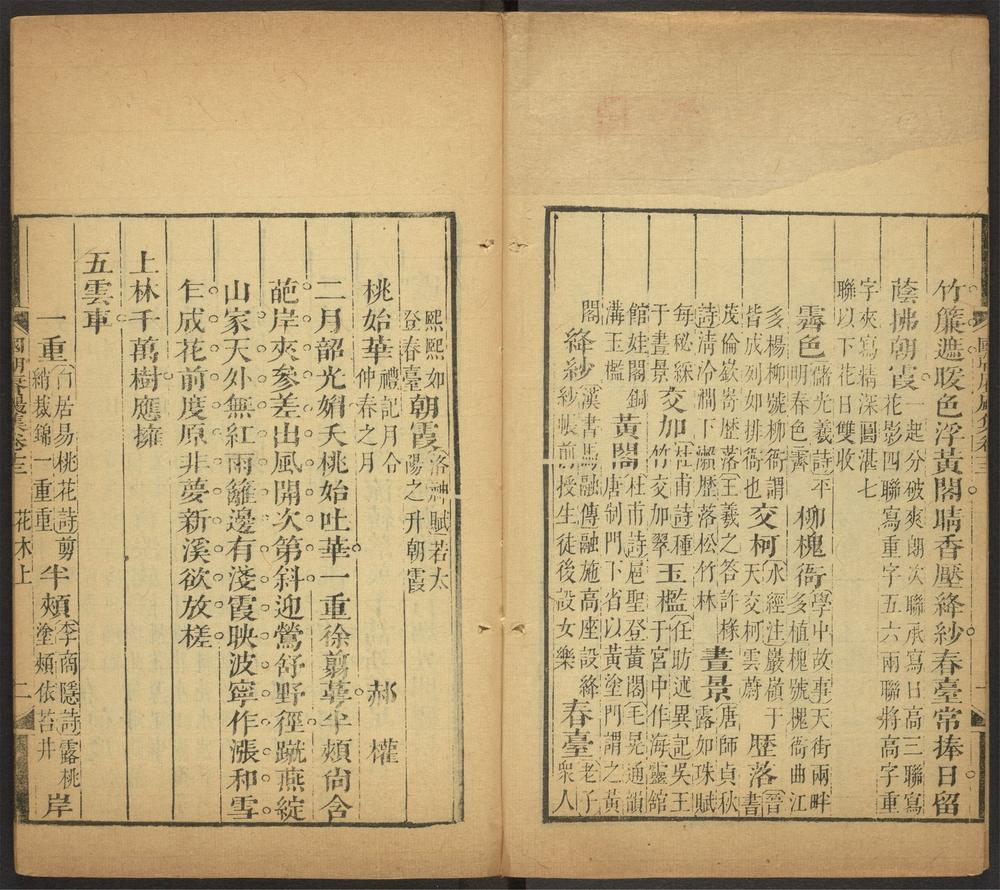 竹簾遮暖色浮黃閣晴香壓絳紗春臺常捧日留
蔭拂朝霞一起分破爽朗次聯承寫日高三聯寫
花影四聯寫重字五六兩聯將高字重
字夾寫精深圓湛七
聯以下花日雙收
霽色儲光羲詩平
明春色霽 柳槐衙學中故事天街兩畔
多植槐號槐衙曲江
多楊柳號柳衙謂
皆成列如排衙也 交柯水經注巖嶺于
天交柯雲蔚 歷落晉書
茂倫嶔嵜歷落王羲之答許椽
詩清泠澗下瀨歷落松竹林 晝景唐師貞秋
露如珠賦
每秘綵
于晝景 交加杜甫詩種
竹交加翠 玉檻任昉述異記吳王
于宮中作海靈館
館娃閣銅
溝玉檻 黃閣杜甫詩扈聖登黃閣毛晃通韻
唐制門下省以黃塗門謂之黃
閣 絳紗漢書馬融傳融施高座設絳
紗帳前授生徒後設女樂 春臺老子
眾人
熙熙如
登春臺 朝霞洛神賦若太
陽之升朝霞
桃始華禮記月令
仲春之月 郝權
二月韶光媚夭桃始吐華一重徐翦萼半頰尙含
葩岸夾參差出風開次第斜迎鶯舒野徑蹴燕綻
山家天外無紅雨籬邊有淺霞映波寧作漲和雪
乍成花前度原非夢新溪欲放槎
上林千萬樹應擁
五雲車
一重白居易桃花詩剪
綃裁錦一重重 半頰李商隱詩露桃
塗頰依苔井 岸
花木上
二